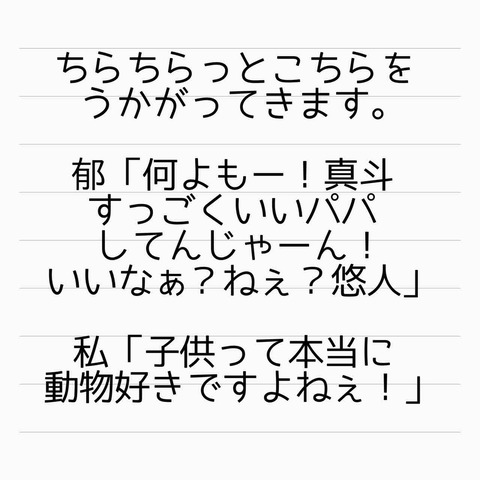 ちらちらっとこちらを
うかがってきます。
郁「何よもー！真斗
すっごくいいパパ
してんじゃーん！
いいなぁ？ねぇ？悠人」
私「子供って本当に
動物好きですよねぇ！」